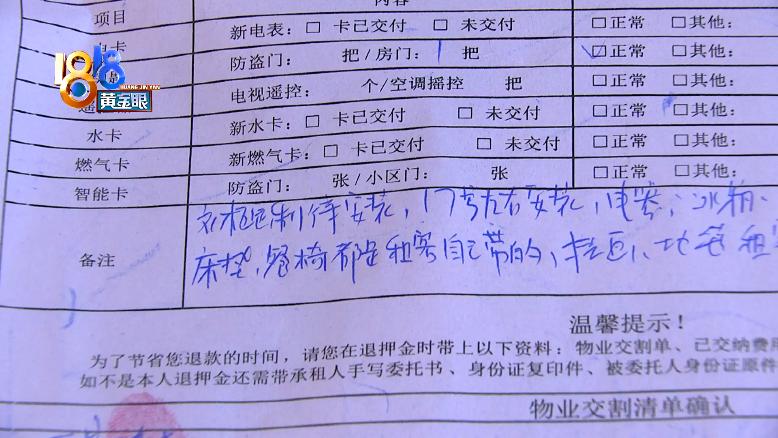 项目
内容
电卡
新电表：□ 卡已交付 □ 未交付
□正常 □其他：
防盗门： 把/房门：1 把
☑正常 □其他：
1818
HUANG JIN YAN
黄金眼
电视遥控： 个/空调摇控 把
□正常 □其他：
水卡
新水卡：□ 卡已交付 □ 未交付
□正常 □其他：
燃气卡
新燃气卡：□ 卡已交付 □ 未交付
□正常 □其他：
智能卡
防盗门： 张/小区门： 张
□正常 □其他：
备注
衣柜定制待安装，17号左右安装，电器，冰箱、
床垫，餐椅都是租客自己带的，
温馨提示！
为了节省您退款的时间，请您在退押金时带上以下资料：物业交割单、已交纳费用
如不是本人退押金还需带承租人手写委托书、身份证复印件、被委托人身份证原件
物业交割清单确认